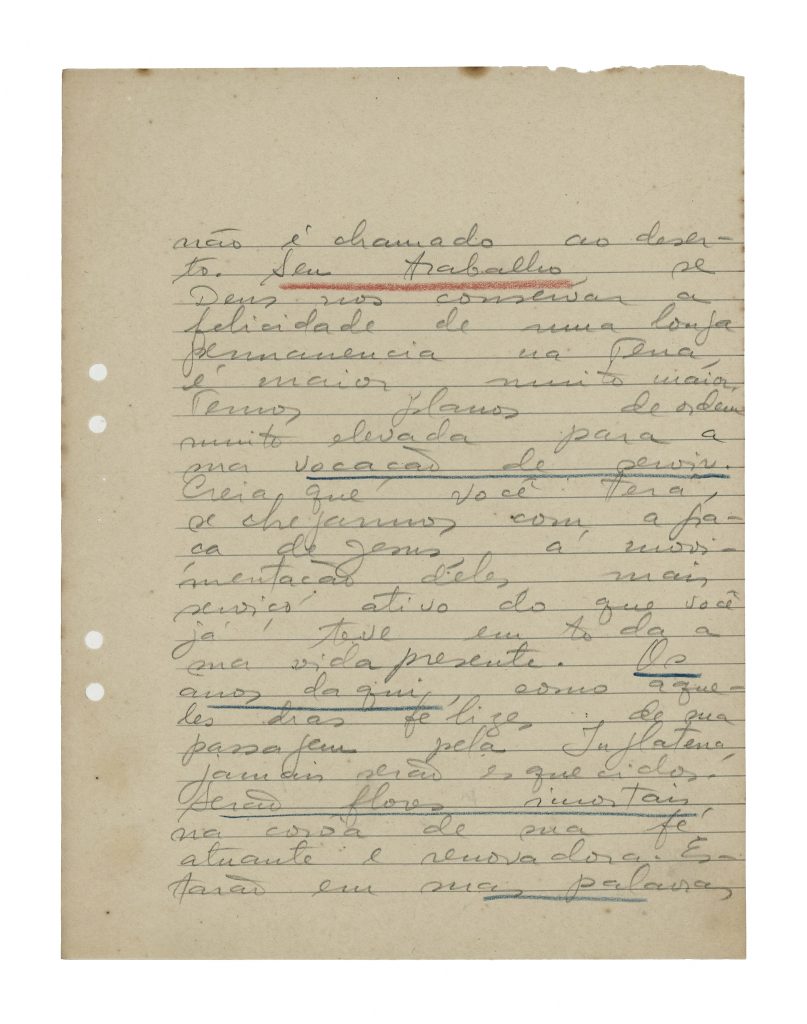 não é chamado ao deser-
to. Seu trabalho, se
Deus nos conservar a
felicidade de uma longa
permanencia na Terra,
é maior, muito maior.
Temos planos de ordem
muito elevada para a
sua vocação de servir.
Creia que você terá,
se chegarmos com a gra-
ça de Jesus, á movi-
mentação dêles mais
serviço ativo do que você
já teve em toda a
sua vida presente. Os
anos daqui, como aque-
les dias felizes de sua
passagem pela Inglaterra,
jamais serão esquecidos.
Serão flores imortais,
na corôa de sua fé
atuante e renovadora. Es-
tarão em suas palavras,